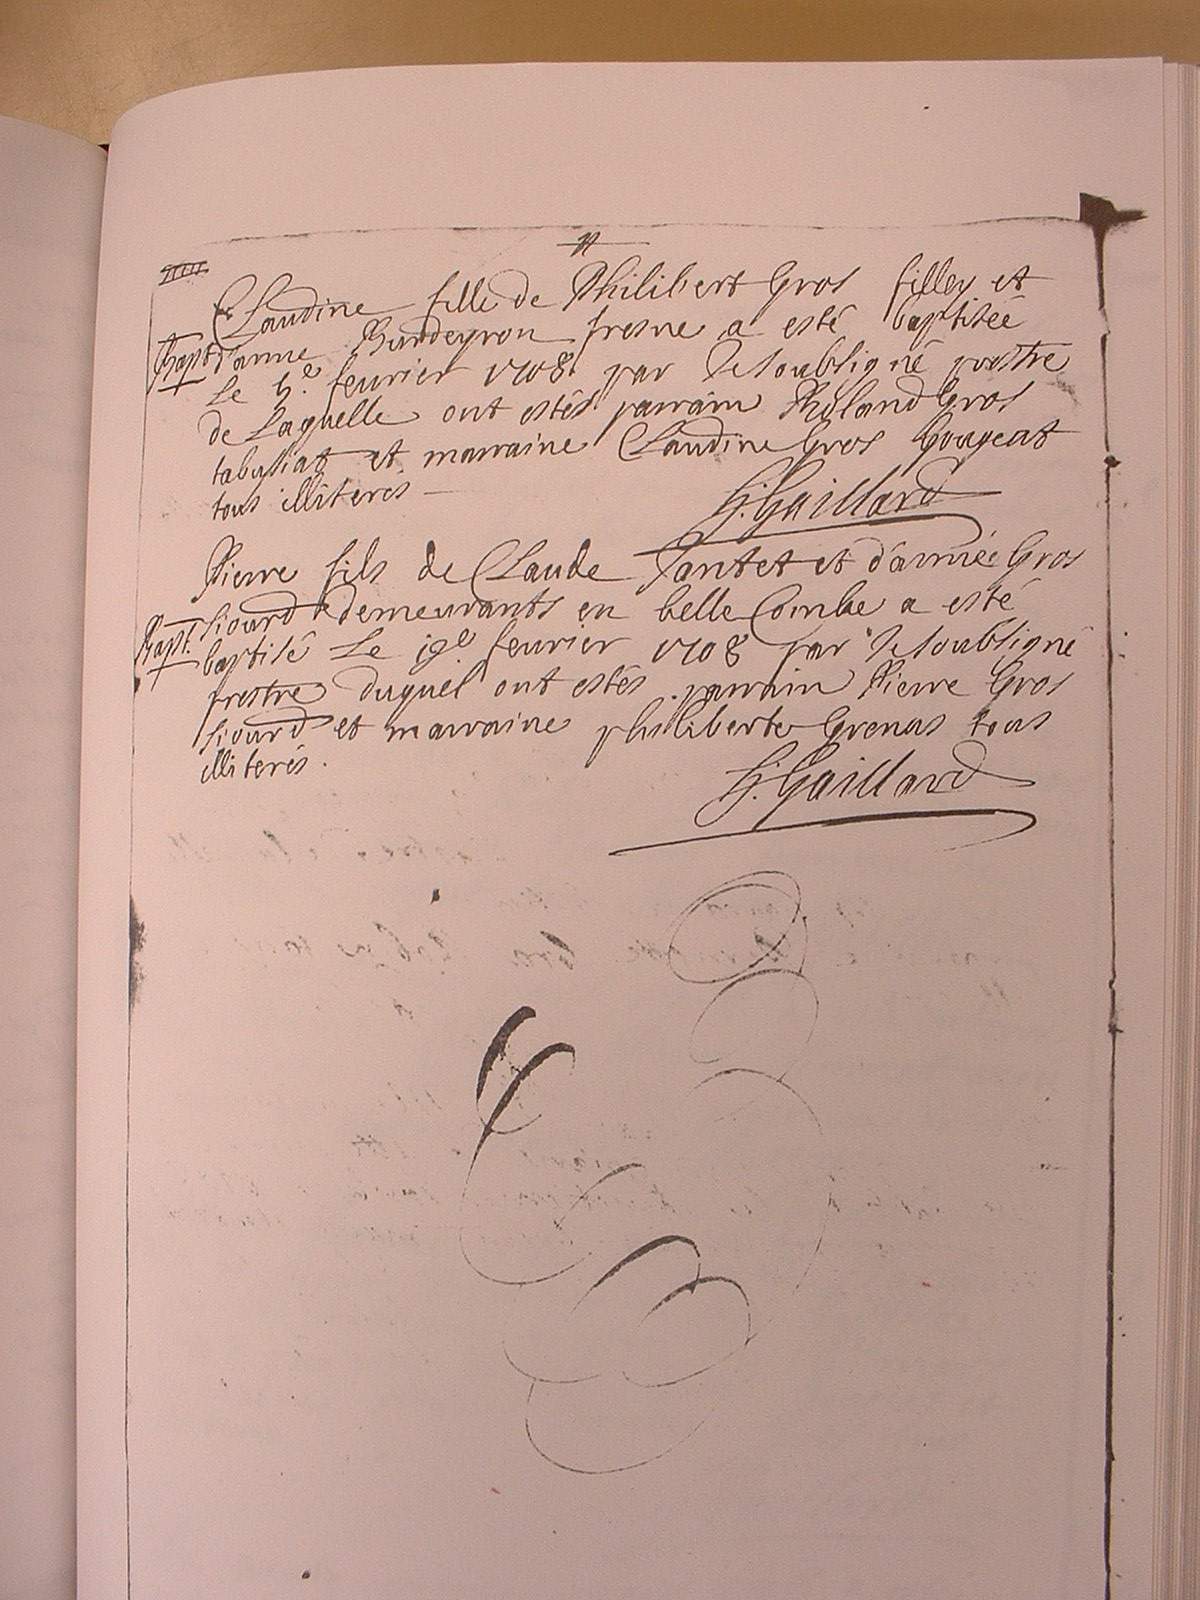 Claudine fille de Philibert Gros filley et
Bapt. d'anne Burdeyron fresne a esté baptisée
Le 5.e feurier 1708 par Je soubsigné prestre
de Laquelle ont estés parrain Roland Gros
et marraine Claudine Gros Gougeat
tous illiteres
G. Gaillard
Pierre fils de Claude Jantet et d'année Gros
Siourd demeurants en belle Combe a esté
Bapt. baptisé Le 19e feurier 1708 par Je soubsigné
prestre duquel ont estés parrain Pierre Gros
Siourd et marraine philiberte Grenas tous
illiterés.
G. Gaillard